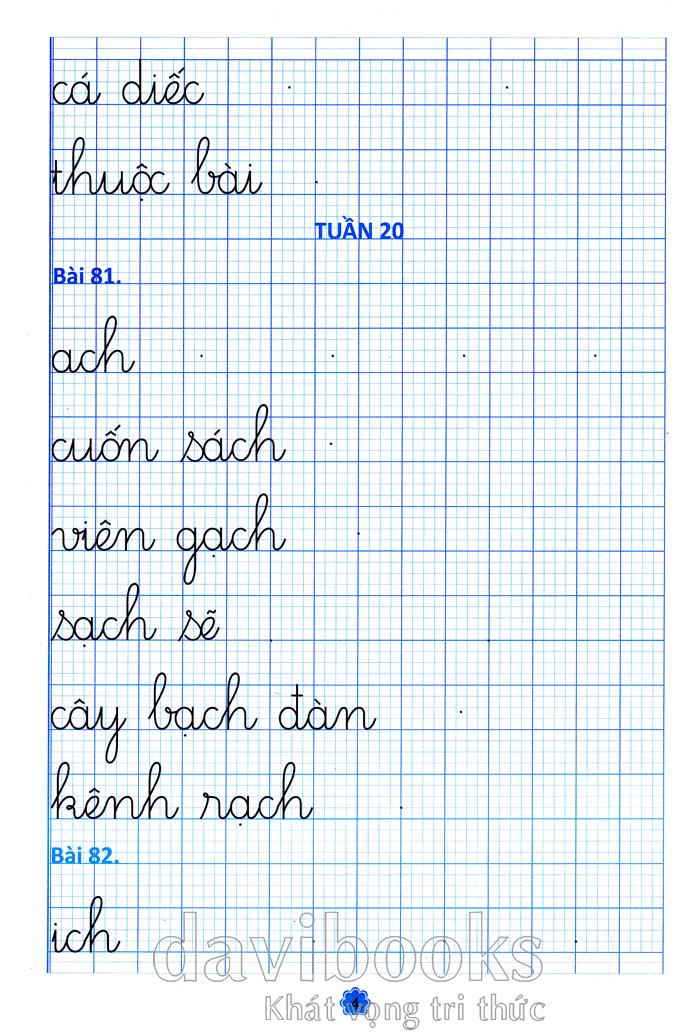 cá diếc
thuộc bài
TUẦN 20
Bài 81.
ach
cuốn sách
viên gạch
sạch sẽ
cây bạch đàn
kênh rạch
Bài 82.
ich
davibooks
4
Khát vọng tri thức